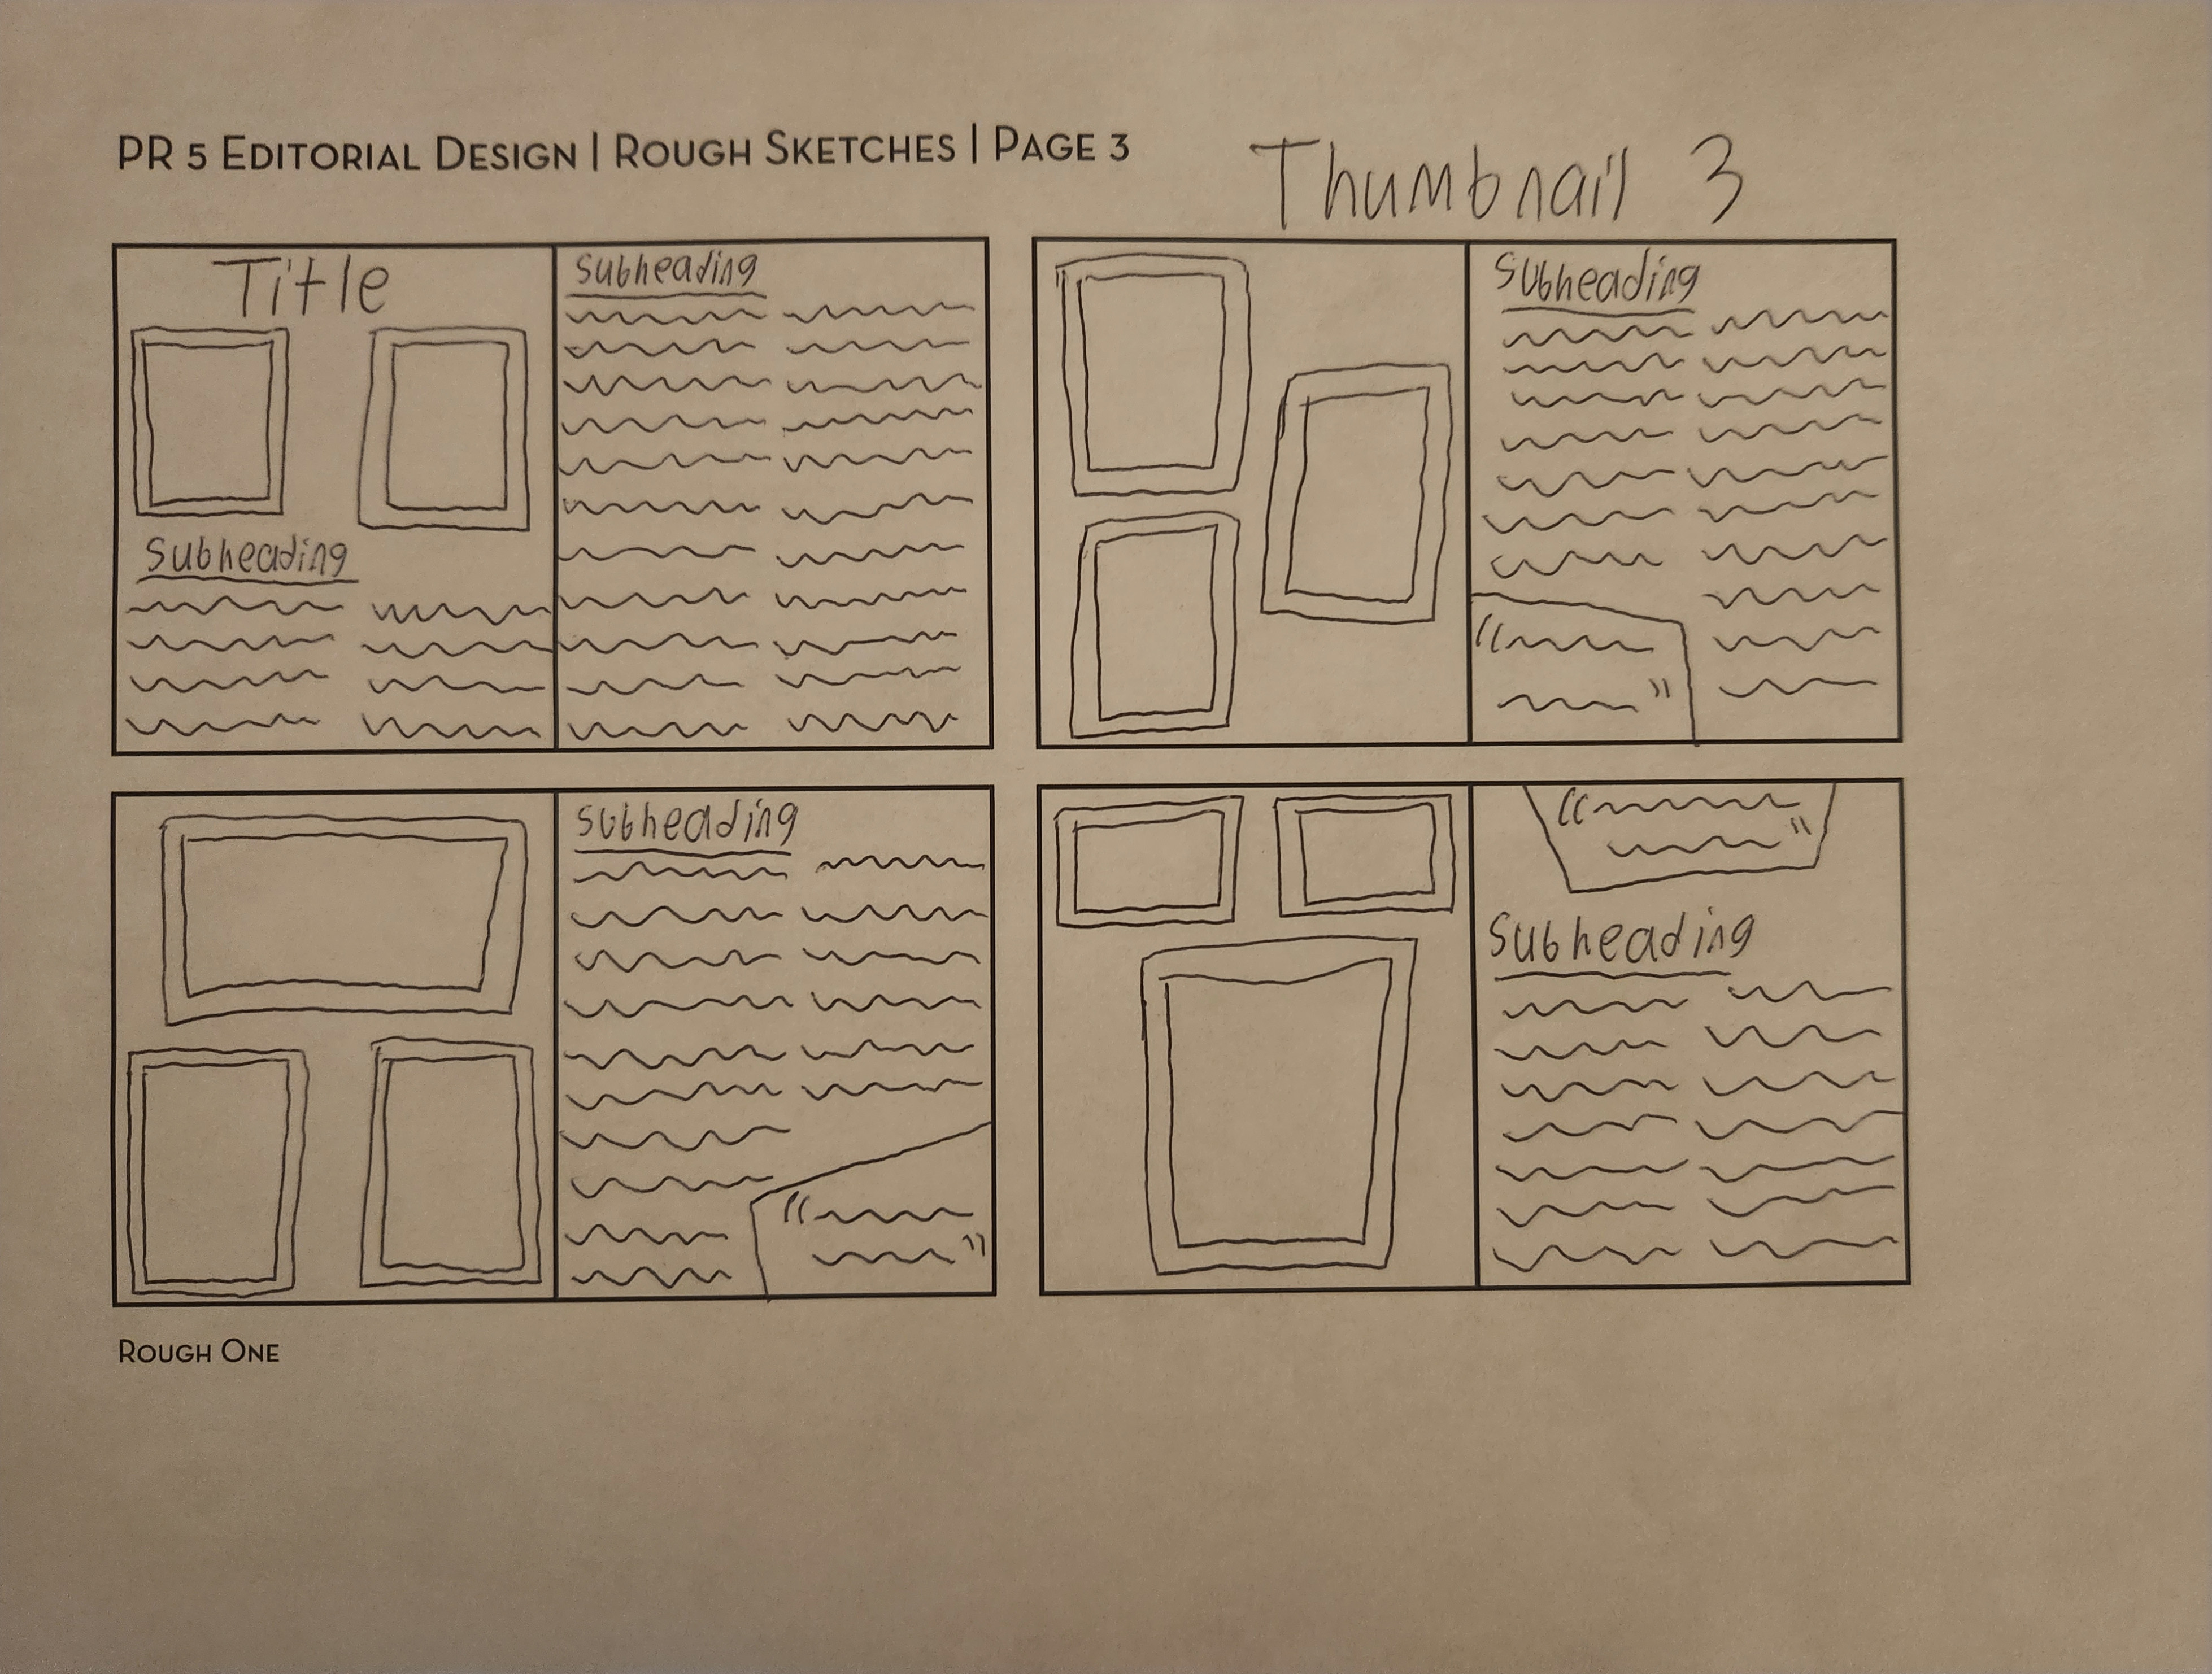 PR 5 EDITORIAL DESIGN | ROUGH SKETCHES | PAGE 3
Thumbnail 3
Title
Subheading
Subheading
Subheading
Subheading
Subheading
ROUGH ONE